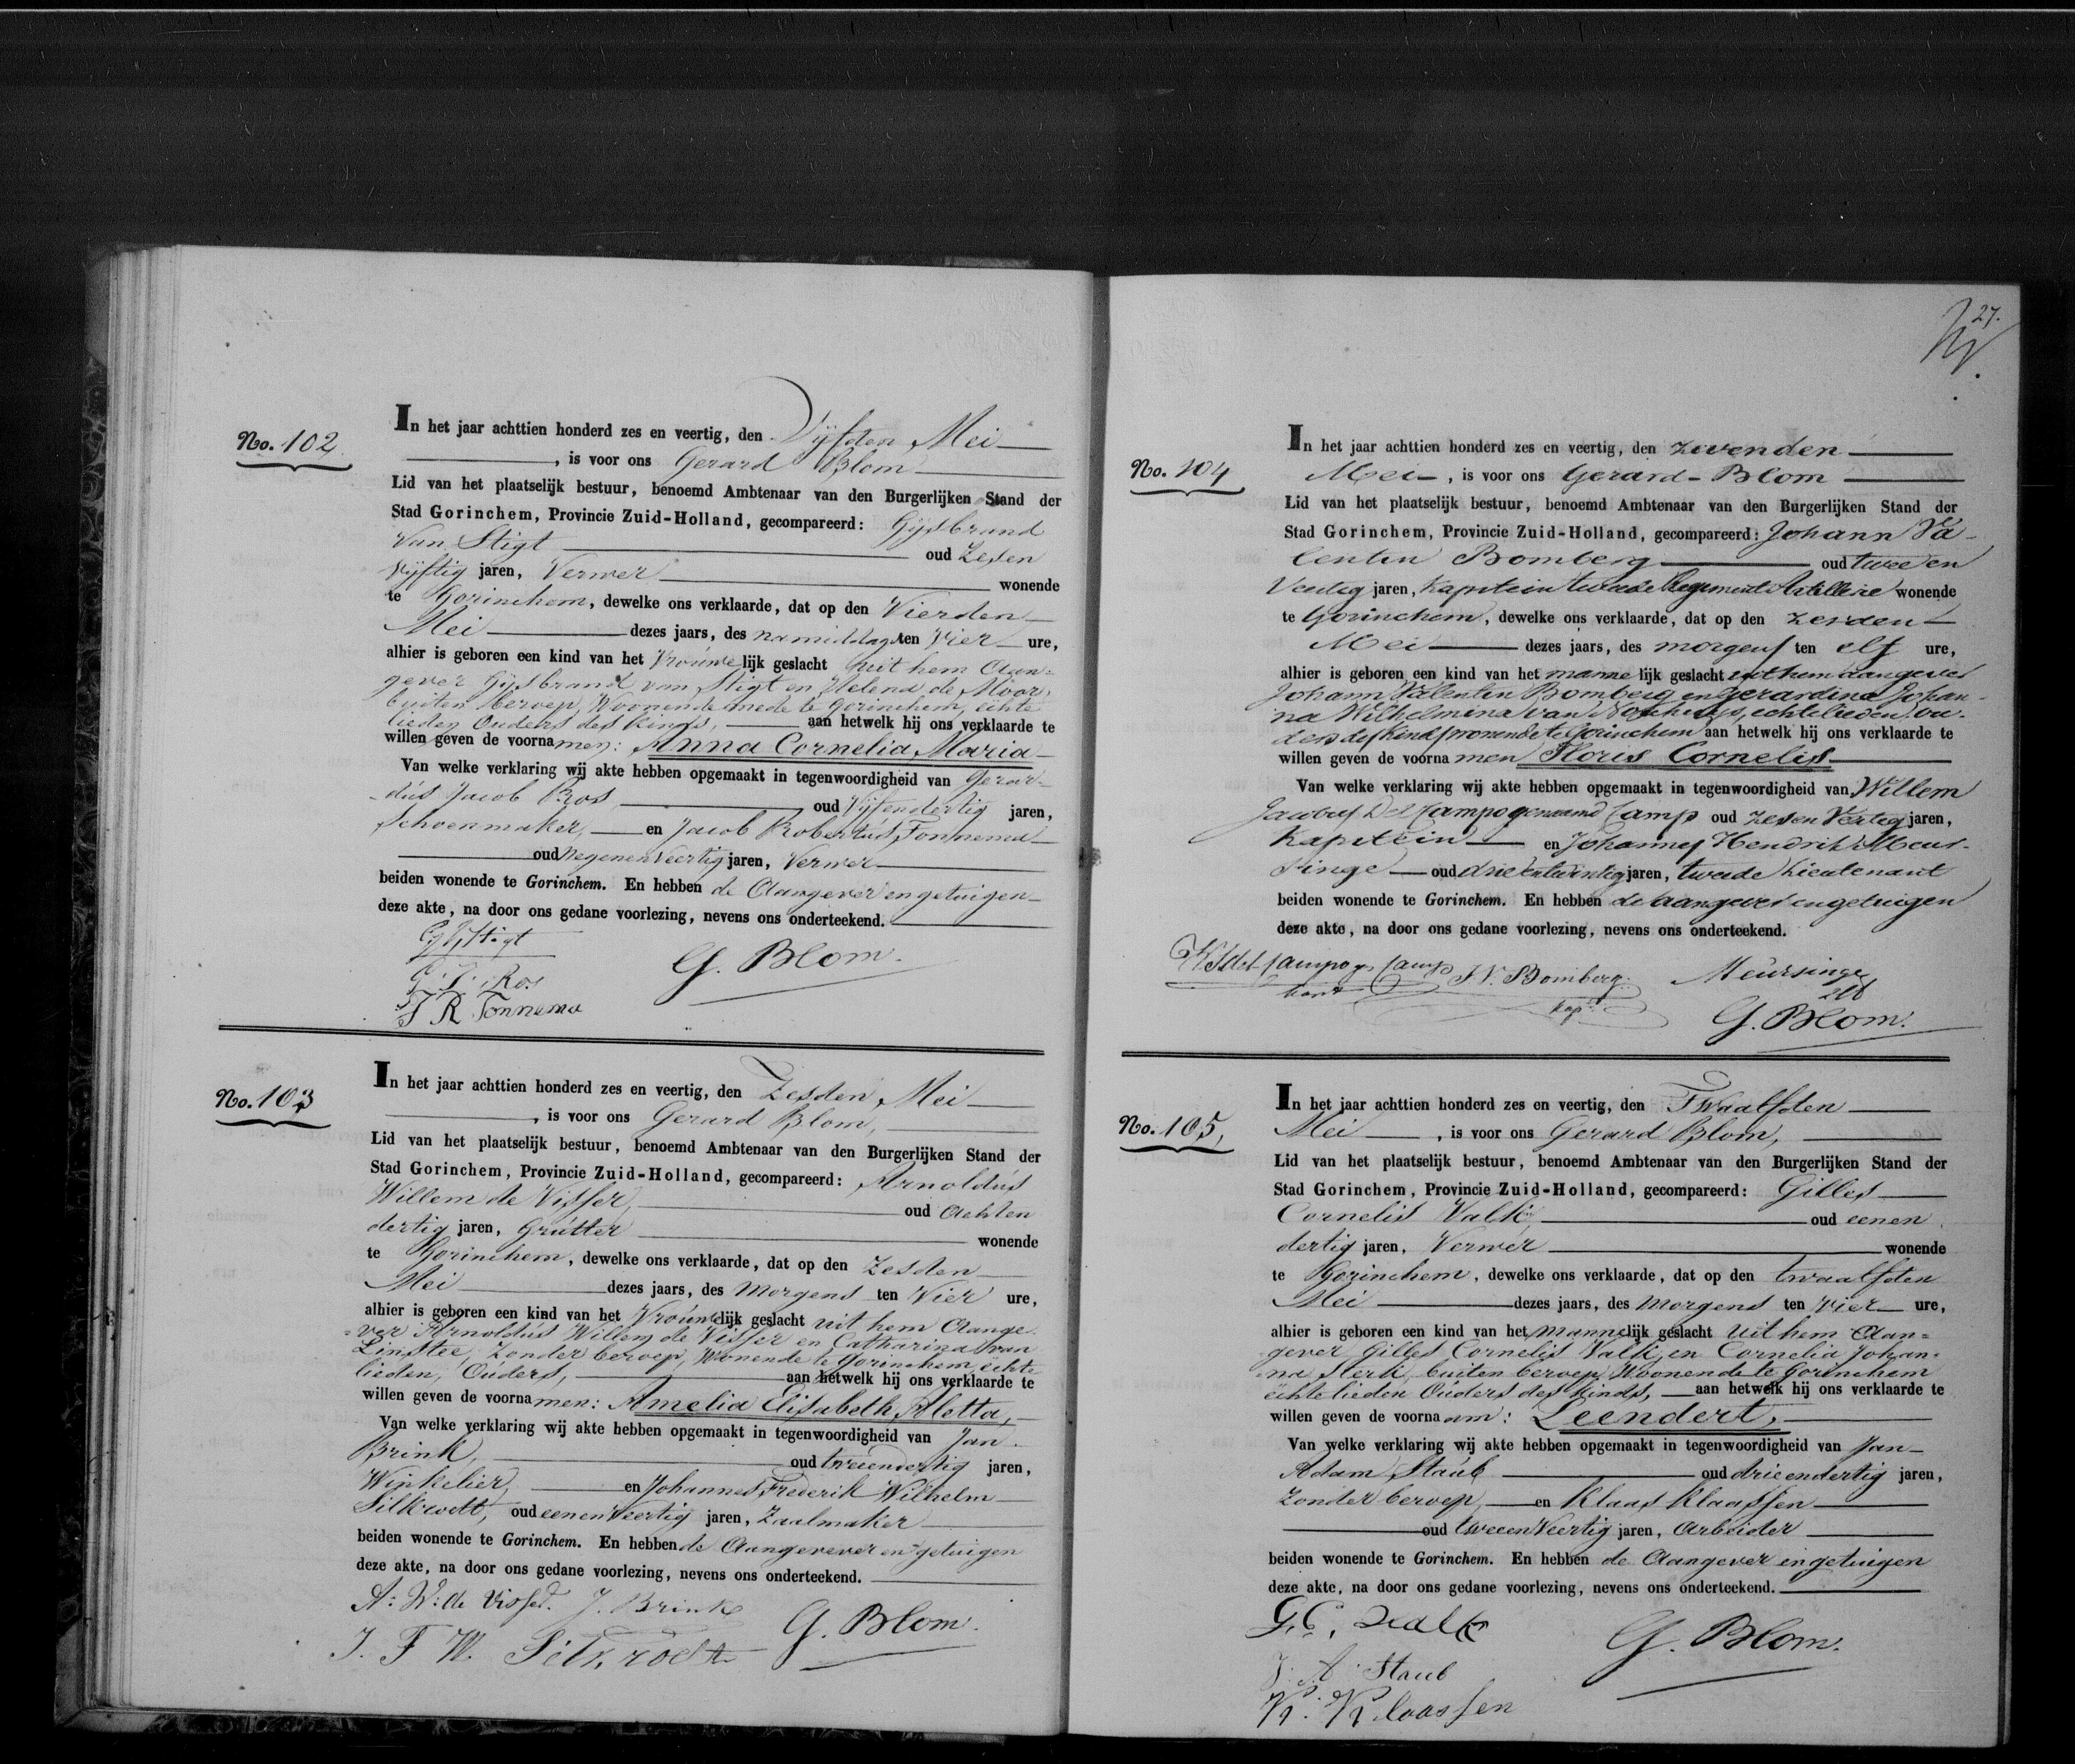 No. 102
In het jaar achttien honderd zes en veertig, den Vijfden Mei
, is voor ons Gerard Blom
Lid van het plaatselijk bestuur, benoemd Ambtenaar van den Burgerlijken Stand der
Stad Gorinchem, Provincie Zuid-Holland, gecompareerd: Gijsbrand
van Stigt oud Zesen
vijftig jaren, Verwer wonende
te Gorinchem, dewelke ons verklaarde, dat op den Vierden
Mei dezes jaars, des namiddags ten Vier ure,
alhier is geboren een kind van het Vrouwelijk geslacht uit hem Aan-
gever Gijsbrand van Stigt en Helena de Moor,
buiten beroep, Woonende mede te Gorinchem, echte
lieden Ouders des kinds, aan hetwelk hij ons verklaarde te
willen geven de voornamen: Anna Cornelia Maria
Van welke verklaring wij akte hebben opgemaakt in tegenwoordigheid van Gerar-
dus Jacob Ros oud Vijfendertig jaren,
Schoenmaker, en Jacob Robertus Tonnema
oud Negenen Veertig jaren, Verwer
beiden wonende te Gorinchem. En hebben de Aangever en getuigen
deze akte, na door ons gedane voorlezing, nevens ons onderteekend.
Stigt
G. J. Ros
G. Blom.
J R Tonnema
No. 103
In het jaar achttien honderd zes en veertig, den Zesden Mei
, is voor ons Gerard Blom,
Lid van het plaatselijk bestuur, benoemd Ambtenaar van den Burgerlijken Stand der
Stad Gorinchem, Provincie Zuid-Holland, gecompareerd: Arnoldus
Willem de Visser, oud Achten
dertig jaren, Grutter wonende
te Gorinchem, dewelke ons verklaarde, dat op den Zesden
Mei dezes jaars, des Morgens ten Vier ure,
alhier is geboren een kind van het Vrouwelijk geslacht uit hem Aange
ver Arnoldus Willem de Visser en Catharina van
Linstee, Zonder beroep, Wonende te Gorinchem echte
lieden, Ouders, aan hetwelk hij ons verklaarde te
willen geven de voornamen: Amelia Elisabeth Aletta,
Van welke verklaring wij akte hebben opgemaakt in tegenwoordigheid van Jan
Brink, oud tweeendertig jaren,
Winkelier, en Johannes Frederik Wilhelm
Silkrodt, oud eenen Veertig jaren, Zaalmaker
beiden wonende te Gorinchem. En hebben de Aangevever en getuigen
deze akte, na door ons gedane voorlezing, nevens ons onderteekend.
A: W: de Visser. J. Brink
G. Blom.
J. F W. Silkrodt
27.
No. 104
In het jaar achttien honderd zes en veertig, den zevenden
Mei, is voor ons Gerard Blom
Lid van het plaatselijk bestuur, benoemd Ambtenaar van den Burgerlijken Stand der
Stad Gorinchem, Provincie Zuid-Holland, gecompareerd: Johann Va-
lentin Bomberg oud twee en
Veertig jaren, Kapitein tweede Regiment Artillerie wonende
te Gorinchem, dewelke ons verklaarde, dat op den zesden
Mei dezes jaars, des morgens ten elf ure,
alhier is geboren een kind van het mannelijk geslacht uit hem aangever
Johann Valentin Bomberg en Gerardina Johan-
na Wilhelmina van echtelieden, ou-
ders des kinds wonende te Gorinchem aan hetwelk hij ons verklaarde te
willen geven de voornamen Floris Cornelis
Van welke verklaring wij akte hebben opgemaakt in tegenwoordigheid van Willem
Jacobus Del Campo genaamd Camp oud zesen Veertig jaren,
Kapitein en Johannes Hendrik Meur-
singe oud drieentwintig jaren, tweede Lieutenant
beiden wonende te Gorinchem. En hebben de aangever en getuigen
deze akte, na door ons gedane voorlezing, nevens ons onderteekend.
del Campo gn Camp J V. Bomberg. Meursinge
kapt
G. Blom.
No. 105,
In het jaar achttien honderd zes en veertig, den Twaalfden
Mei, is voor ons Gerard Blom,
Lid van het plaatselijk bestuur, benoemd Ambtenaar van den Burgerlijken Stand der
Stad Gorinchem, Provincie Zuid-Holland, gecompareerd: Gilles
Cornelis Valk, oud eenen
dertig jaren, Verwer wonende
te Gorinchem, dewelke ons verklaarde, dat op den twaalfden
Mei dezes jaars, des Morgens ten Vier ure,
alhier is geboren een kind van het mannelijk geslacht uit hem Aan=
gever Gilles Cornelis Valk, en Cornelia Johan-
na Sterk, buiten beroep, Woonende te Gorinchem
echtelieden Ouders des kinds, aan hetwelk hij ons verklaarde te
willen geven de voornaam: Leendert,
Van welke verklaring wij akte hebben opgemaakt in tegenwoordigheid van Jan
Adam Staub oud drieendertig jaren,
Zonder beroep, en Klaas Klaassen
oud tweeen Veertig jaren, Arbeider
beiden wonende te Gorinchem. En hebben de Aangever en getuigen
deze akte, na door ons gedane voorlezing, nevens ons onderteekend.
G. C. Valk
G. Blom.
J. A. Staub
K. Klaassen